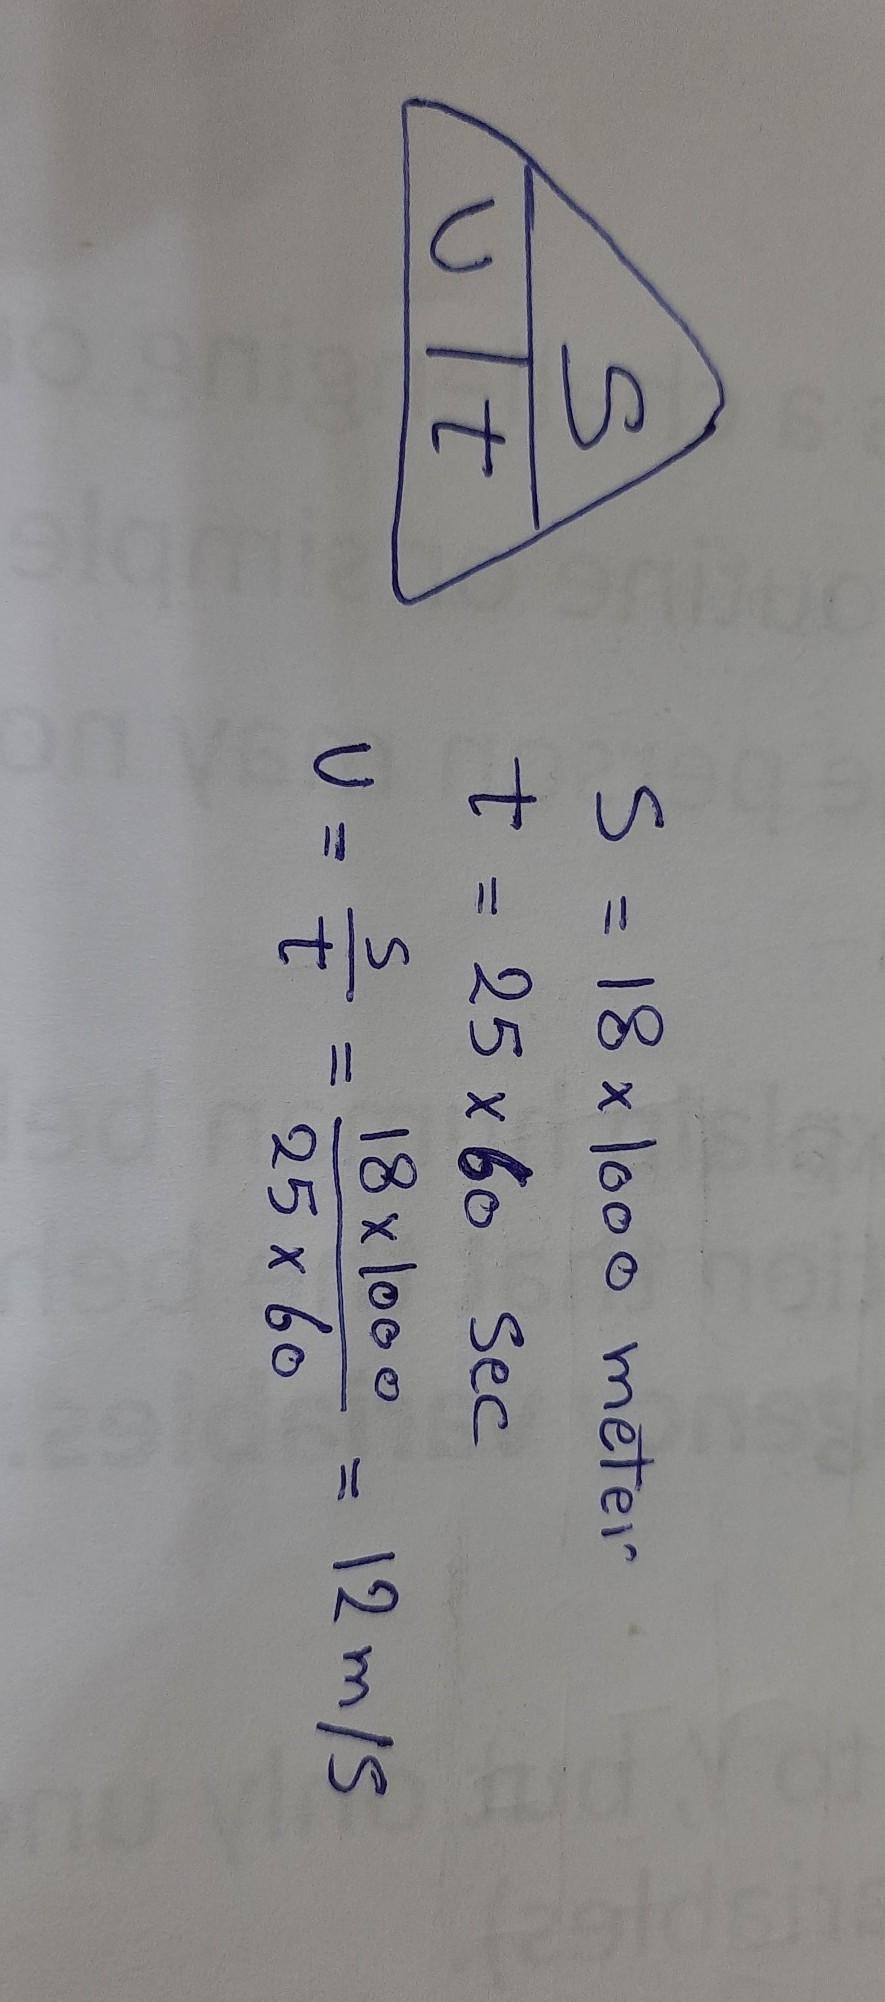 S
υ | t
S = 18 × 1000 meter
t = 25 × 60 sec
υ = s/t = 18 × 1000 / 25 × 60 = 12 m/s